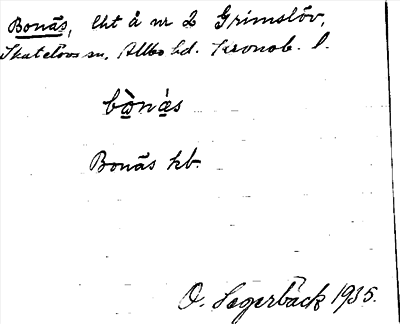 Bonäs, lht å nr 2 Grimslöv,
Skatelövs sn, Allbo hd. Kronob. l.
bònás
Bonäs hb.
O. Segerbäck 1935.